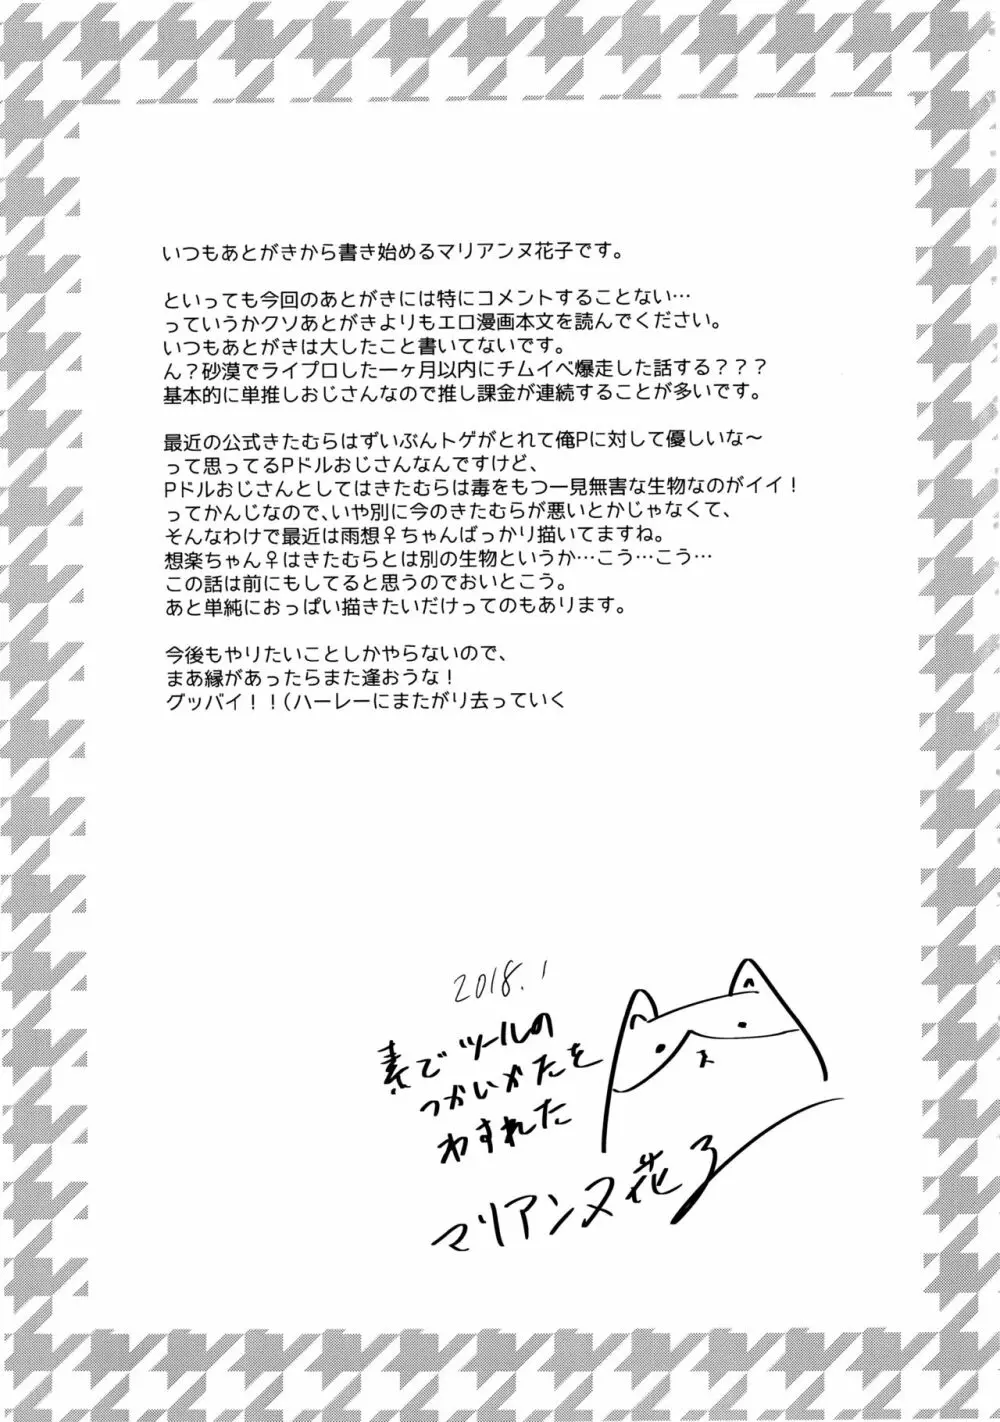 いつもあとがきから書き始めるマリアンヌ花子です。
といっても今回のあとがきには特にコメントすることない…
っていうかクソあとがきよりもエロ漫画本文を読んでください。
いつもあとがきは大したこと書いてないです。
ん？砂漠でライプロした一ヶ月以内にチムイベ爆走した話する？？？
基本的に単推しおじさんなので推し課金が連続することが多いです。
最近の公式きたむらはずいぶんトゲがとれて俺Pに対して優しいな～
って思ってるPドルおじさんなんですけど、
Pドルおじさんとしてはきたむらは毒をもつ一見無害な生物なのがイイ！
ってかんじなので、いや別に今のきたむらが悪いとかじゃなくて、
そんなわけで最近は雨想♀ちゃんばっかり描いてますね。
想楽ちゃん♀はきたむらとは別の生物というか…こう…こう…
この話は前にもしてると思うのでおいとこう。
あと単純におっぱい描きたいだけってのもあります。
今後もやりたいことしかやらないので、
まあ縁があったらまた逢おうな！
グッバイ！！(ハーレーにまたがり去っていく
2018.1
素でツールの
つかいかたを
わすれた
マリアンヌ花子